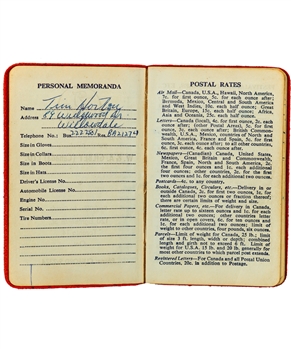 PERSONAL MEMORANDA
Name Tim Horton
Address
Willowdale
Telephone No.: Bus.
Size in Gloves
Size in Collars
Size in Boots
Size in Hats
Driver's License No.
Automobile License No.
Engine No.
Serial No.
Tire Numbers
POSTAL RATES
Air Mail—Canada, U.S.A., Hawaii, North America,
7c. for first ounce, 5c. for each ounce after;
Bermuda, Mexico, Central and South America
and West Indies, 10c. each half ounce; Great
Britain, Europe, 15c. each half ounce; Africa,
Asia and Oceania, 25c. each half ounce.
Letters—Canada (local), 4c. for first ounce, 2c. each
ounce after; (other Postal Areas), 5c. for first
ounce, 2c. for each ounce after; British Common-
wealth, U.S.A., Mexico, countries of North and
South America, France and Spain, 5c. for first
ounce, 3c. each ounce after; to all other countries,
6c. first ounce, 4c. each ounce after.
Newspapers—(Canadian) Canada, United States,
Mexico, Great Britain and Commonwealth,
France, Spain, North, South and Central America,
for the first two ounces
for each additional two ounces or other countries)
there are certain limits of weight and size.
Postcards—4c. to any country.
Books, Catalogues, Circulars, etc.—Delivery in or
outside Canada, 2c. for first two ounces, 1c. for
each additional two ounces or other countries)
there are certain limits of weight and size.
Commercial Papers, etc.—For delivery in Canada,
letter rate up to sixteen ounces and 1c. for each
additional two ounces; other countries letter
rate, or in open covers, 6c. for first ten ounces
and 1c. for each additional two ounces. Limit of
weight to other countries, four pounds, six ounces.
Parcels—Limit of weight for Canada, 25 lb.; limit
of size 3 ft. length, width or depth; combined
length and girth not to exceed 6 ft. Limit of
weight for U.S.A. 15 lb. and 20 lb. generally for
most other countries to which parcel post extends.
Registered Letters—For Canada and all Postal Union
Countries, 20c. in addition to Postage.